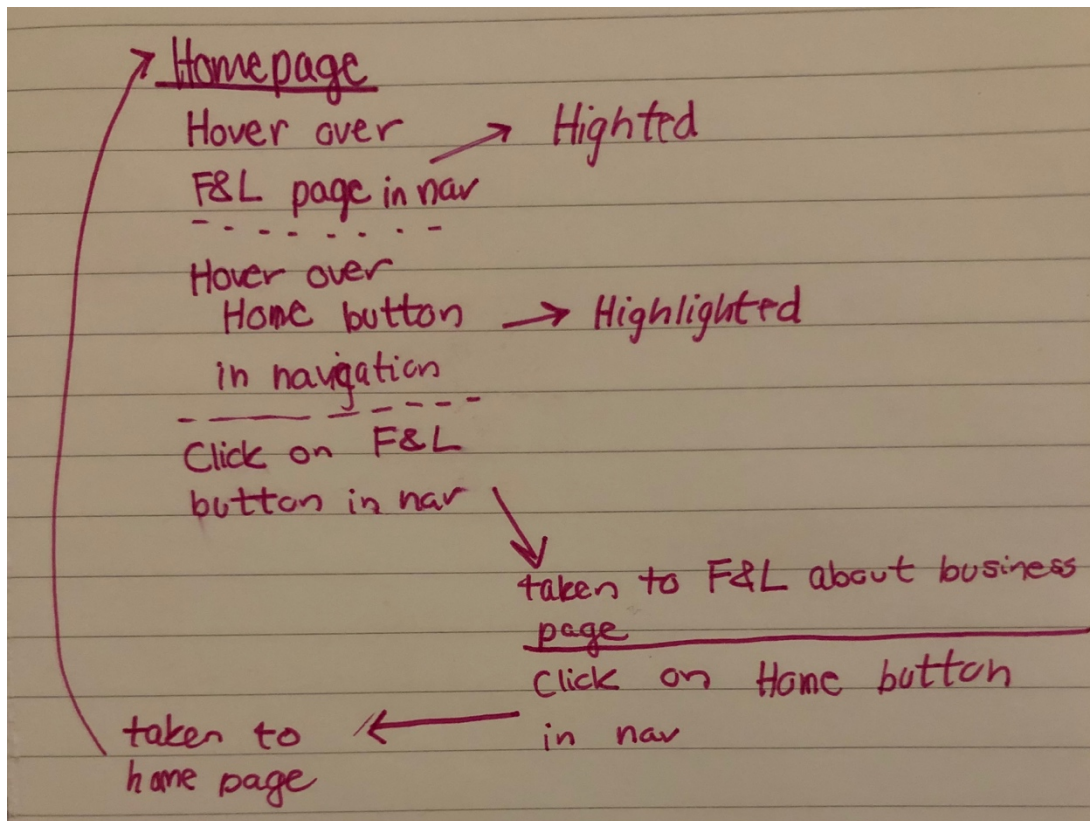 Homepage
Hover over
F&L page in nav
Highted
Hover over
Home button
in navigation
Highlighted
Click on F&L
button in nav
taken to F&L about business
page
Click on Home button
in nav
taken to
home page